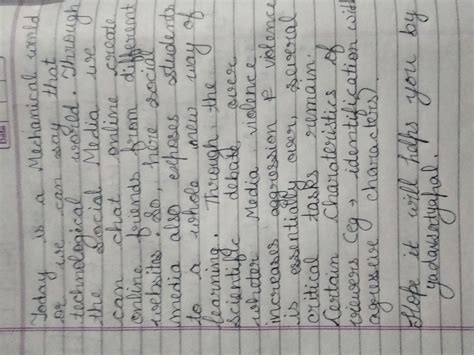 Today is a Mechanical world
or we can say that
technological world. Through
the Social Media we
can chat online create
online friends from different
websites. So, here social
media also exposes students
to a whole new way of
learning. Through the
Scientific debate over
wheter Media violence
increases aggression & violence
is essentially over, several
critical tasks remain.
Certain Charateristics of
viewers (eg → identification with
agressive characters)
Hope it will helps you by
yadavsatyapal.
Date